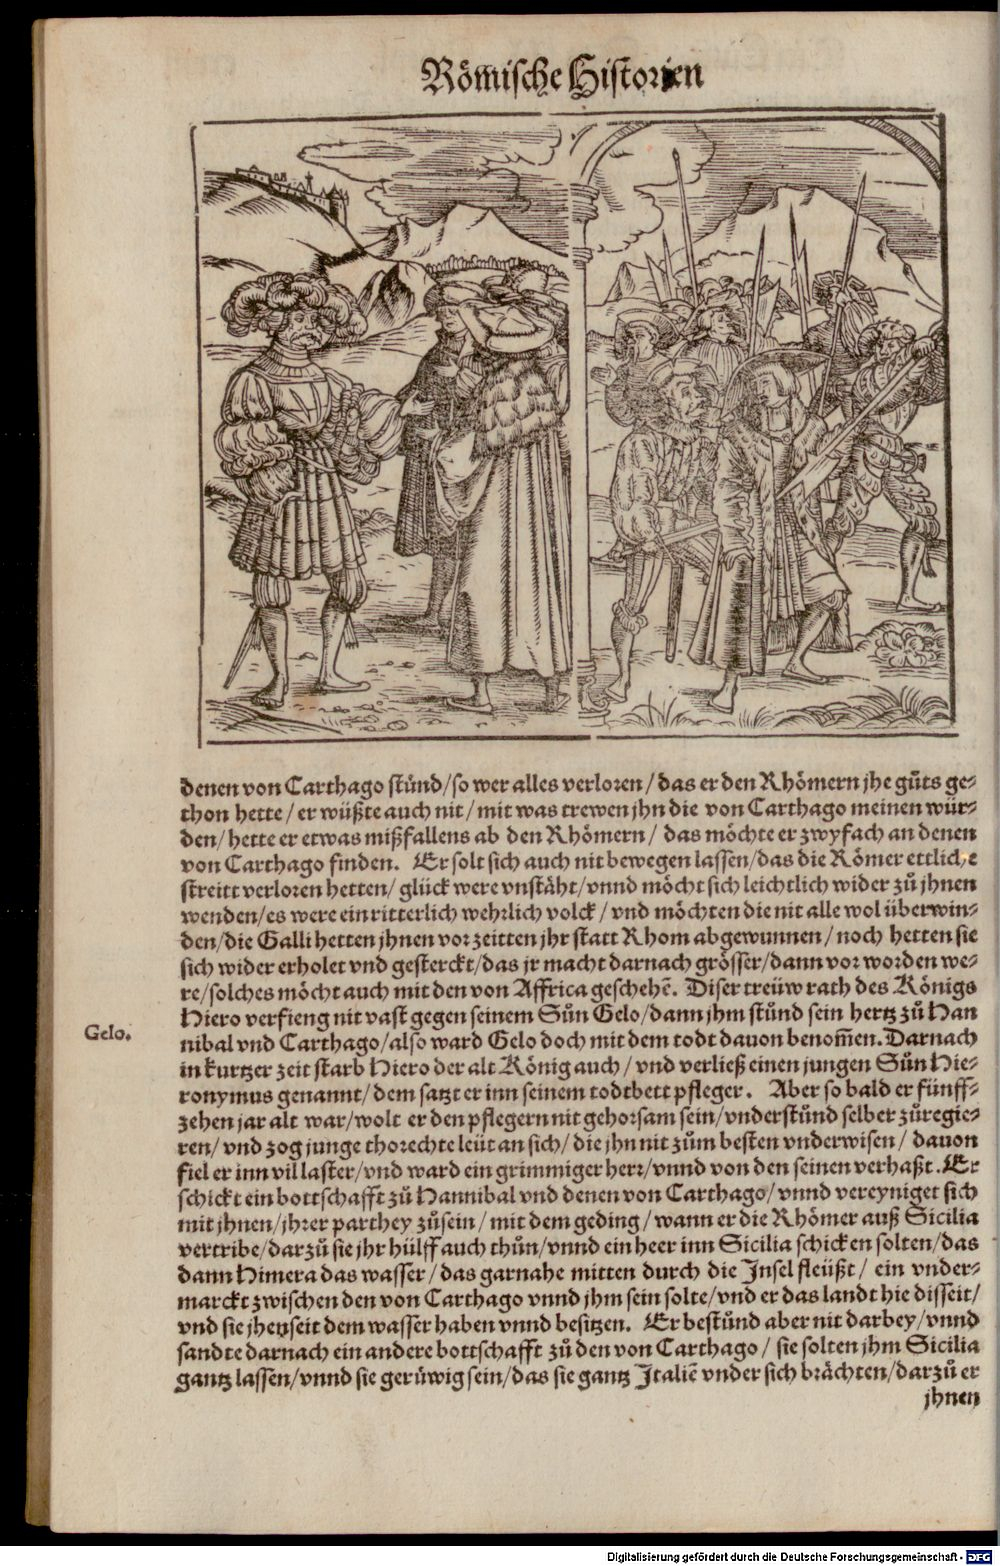 Römische Historien
denen von Carthago stůnd/so wer alles verloren/das er den Rhömern jhe gůts ge-
thon hette/er wüßte auch nit/mit was trewen jhn die von Carthago meinen wür-
den/hette er etwas mißfallens ab den Rhömern/das möchte er zwyfach an denen
von Carthago finden. Er solt sich auch nit bewegen lassen/das die Römer ettliche
streitt verloren hetten/glück were vnstäht/vnnd möcht sich leichtlich wider zů jhnen
wenden/es were ein ritterlich wehrlich volck/vnd möchten die nit alle wol überwin-
den/die Galli hetten jhnen vor zeitten jhr statt Rhom abgewunnen/noch hetten sie
sich wider erholet vnd gesterckt/das jr macht darnach grösser/dann vor worden we-
re/solches möcht auch mit den von Affrica geschehē. Diser treüw rath des Königs
Hiero verfieng nit vast gegen seinem Sůn Gelo/dann jhm stůnd sein hertz zů Han
Gelo.
nibal vnd Carthago/also ward Gelo doch mit dem todt dauon benom̄en. Darnach
in kurtzer zeit starb Hiero der alt König auch/vnd verließ einen jungen Sůn Hie-
ronymus genannt/dem satzt er inn seinem todtbett pfleger. Aber so bald er fünff-
zehen jar alt war/wolt er den pflegern nit gehorsam sein/vnderstůnd selber zů regie-
ren/vnd zog junge thorechte leüt an sich/die jhn nit zům besten vnderwisen/dauon
fiel er inn vil laster/vnd ward ein grimmiger herr/vnnd von den seinen verhaßt. Er
schickt ein bottschafft zů Hannibal vnd denen von Carthago/vnnd vereyniget sich
mit jhnen/jhrer parthey zů sein/mit dem geding/wann er die Rhömer auß Sicilia
vertribe/darzů sie jhr hülff auch thůn/vnnd ein heer inn Sicilia schicken solten/das
dann Himera das wasser/das garnahe mitten durch die Insel fleüßt/ein vnder-
marckt zwischen den von Carthago vnnd jhm sein solte/vnd er das landt hie disseit/
vnd sie jhenseit dem wasser haben vnnd besitzen. Er bestůnd aber nit darbey/vnnd
sandte darnach ein andere bottschafft zů den von Carthago/sie solten jhm Sicilia
gantz lassen/vnnd sie gerüwig sein/das sie gantz Italiē vnder sich brächten/darzů er
jhnen
Digitalisierung gefördert durch die Deutsche Forschungsgemeinschaft - DFG